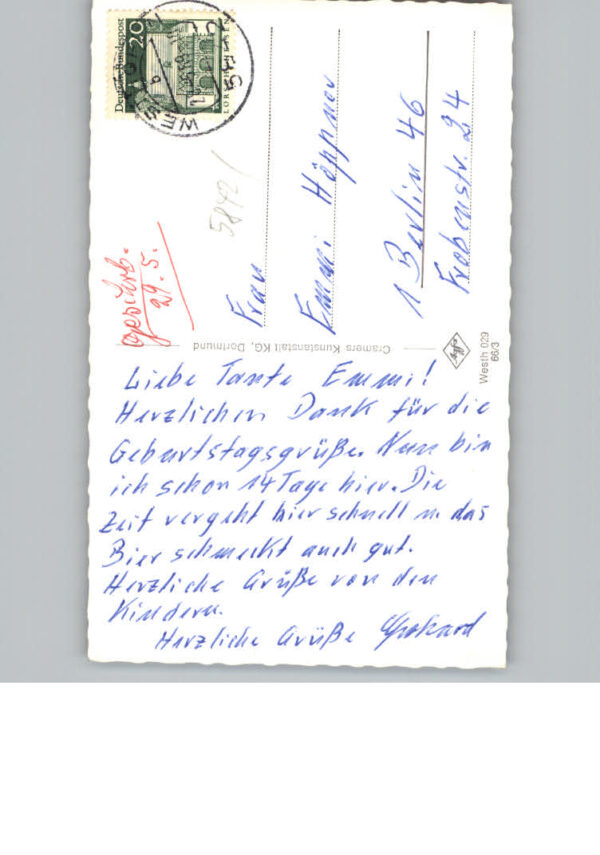 Deutsche Bundespost
20
LORSCH
5842
geschrb.
29. 5.
Frau
Emmi Höppner
1 Berlin 46
Frobenstr. 24
Cramers Kunstanstalt KG, Dortmund
Agfa
Westh 029
66/3
Liebe Tante Emmi!
Herzlichen Dank für die
Geburtstagsgrüße. Nun bin
ich schon 14 Tage hier. Die
Zeit vergeht hier schnell u. das
Bier schmeckt auch gut.
Herzliche Grüße von den
Kindern.
Herzliche Grüße